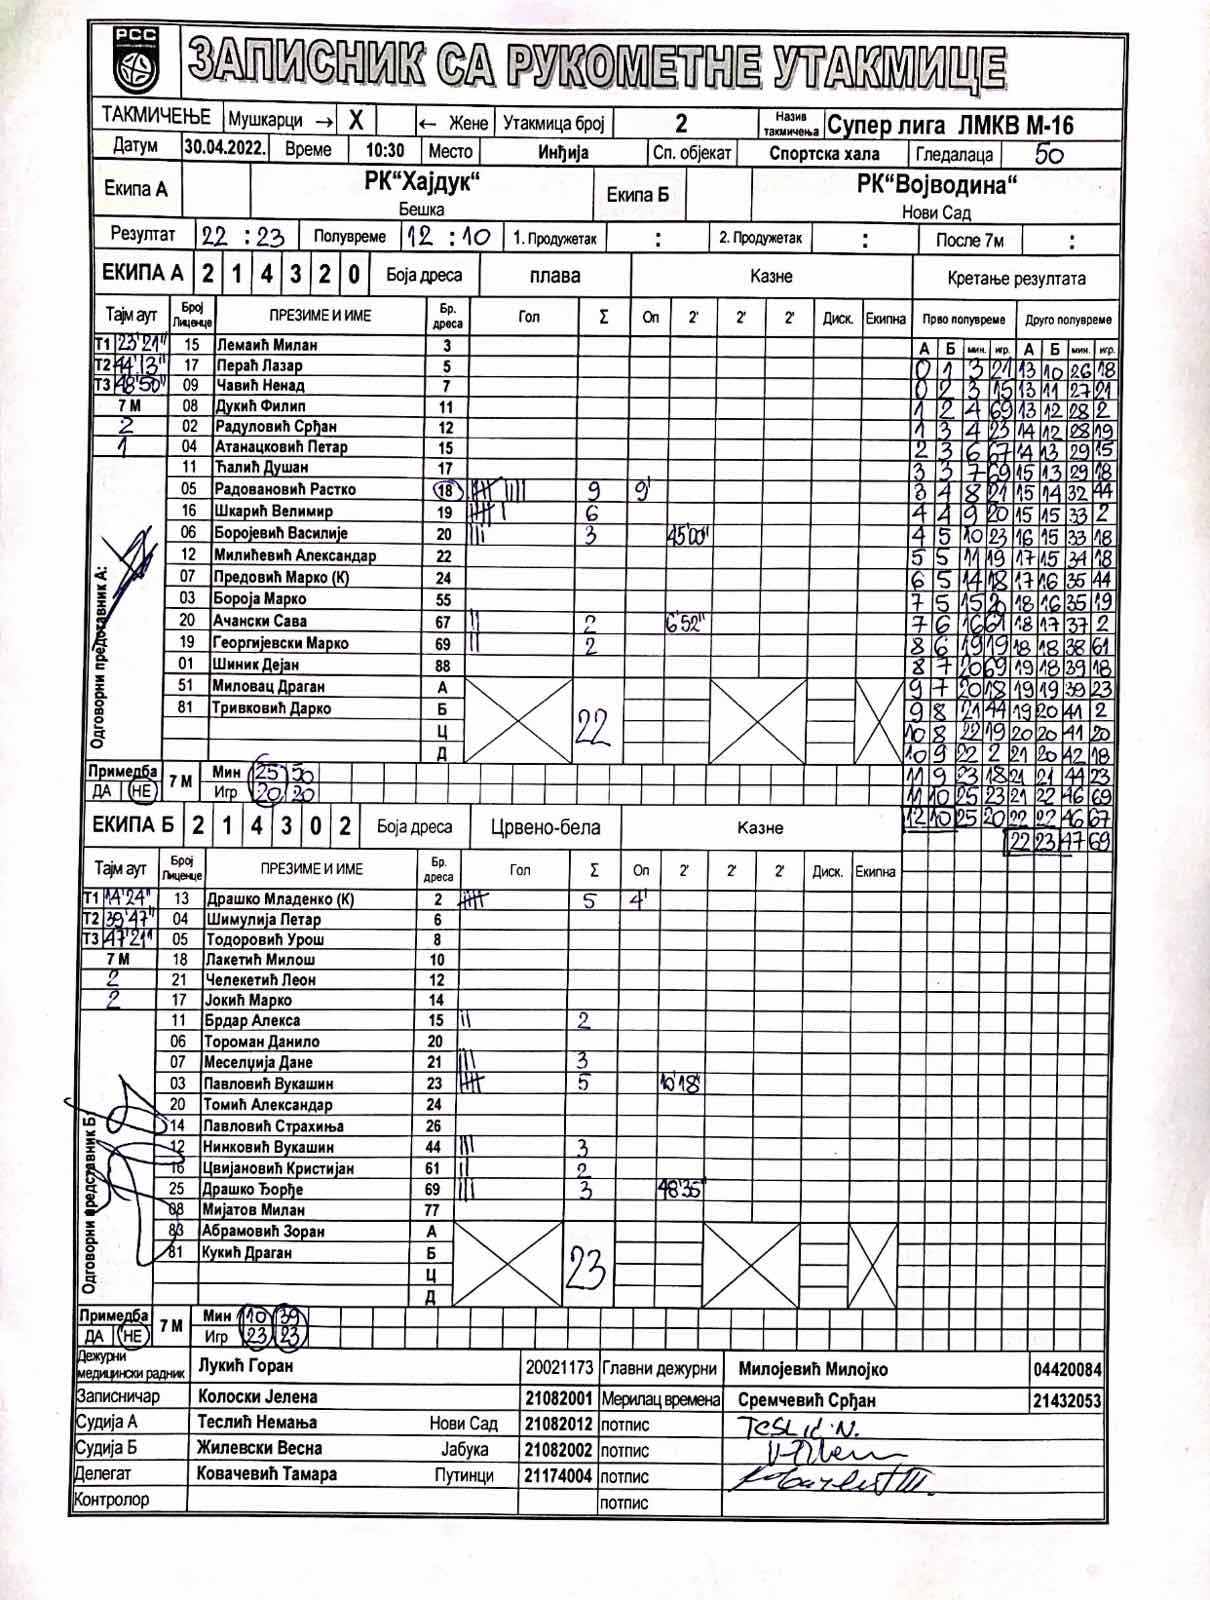 РСС
ЗАПИСНИК СА РУКОМЕТНЕ УТАКМИЦЕ
ТАКМИЧЕЊЕ Мушкарци → X ← Жене Утакмица број 2 Назив такмичења Супер лига ЛМКВ М-16
Датум 30.04.2022. Време 10:30 Место Инђија Сп. објекат Спортска хала Гледалаца 50
Екипа А РК“Хајдук“ Бешка Екипа Б РК“Војводина“ Нови Сад
Резултат 22 : 23 Полувреме 12 : 10 1. Продужетак : 2. Продужетак : После 7м :
ЕКИПА А 2 1 4 3 2 0 Боја дреса плава Казне Кретање резултата
Тајм аут Број Лиценце ПРЕЗИМЕ И ИМЕ Бр. дреса Гол Σ Оп 2' 2' 2' Диск. Екипна Прво полувреме Друго полувреме
А Б мин. игр. А Б мин. игр.
Т1 23'21" 15 Лемаић Милан 3
Т2 44'13" 17 Пераћ Лазар 5 0 1 3 21 13 10 26 18
Т3 48'50" 09 Чавић Ненад 7 0 2 3 15 13 11 27 21
7 М 08 Дукић Филип 11 1 2 4 69 13 12 28 2
2 02 Радуловић Срђан 12 1 3 4 23 14 12 28 19
1 04 Атанацковић Петар 15 2 3 6 67 14 13 29 15
11 Ћалић Душан 17 3 3 7 69 15 13 29 18
05 Радовановић Растко 18 9 9' 3 4 8 21 15 14 32 44
16 Шкарић Велимир 19 6 4 4 9 20 15 15 33 2
06 Боројевић Василије 20 3 45'00" 4 5 10 23 16 15 33 18
12 Милићевић Александар 22 5 5 11 19 17 15 34 18
07 Предовић Марко (К) 24 6 5 14 18 17 16 35 44
03 Бороја Марко 55 7 5 15 20 18 16 35 19
20 Ачански Сава 67 2 6'52" 7 6 16 61 18 17 37 2
19 Георгијевски Марко 69 2 8 6 19 19 18 18 38 61
01 Шиник Дејан 88 8 7 20 69 19 18 39 18
51 Миловац Драган А 9 7 20 18 19 19 39 23
81 Тривковић Дарко Б 22 9 8 21 44 19 20 41 2
Ц 10 8 22 19 20 20 41 20
Д 10 9 22 2 21 20 42 18
Одговорни представник А:
Примедба ДА НЕ 7 М Мин 25 50 11 9 23 18 21 21 44 23
Игр 20 20 11 10 25 23 21 22 46 69
ЕКИПА Б 2 1 4 3 0 2 Боја дреса Црвено-бела Казне 12 10 25 20 22 22 46 67
22 23 47 69
Тајм аут Број Лиценце ПРЕЗИМЕ И ИМЕ Бр. дреса Гол Σ Оп 2' 2' 2' Диск. Екипна
Т1 14'24" 13 Драшко Младенко (К) 2 5 4'
Т2 39'47" 04 Шимулија Петар 6
Т3 47'21" 05 Тодоровић Урош 8
7 М 18 Лакетић Милош 10
2 21 Челекетић Леон 12
2 17 Јокић Марко 14
11 Брдар Алекса 15 2
06 Тороман Данило 20
07 Меселџија Дане 21 3
03 Павловић Вукашин 23 5 10'18"
20 Томић Александар 24
14 Павловић Страхиња 26
12 Нинковић Вукашин 44 3
16 Цвијановић Кристијан 61 2
25 Драшко Ђорђе 69 3 48'35"
08 Мијатов Милан 77
83 Абрамовић Зоран А
81 Кукић Драган Б 23
Ц
Д
Одговорни представник Б:
Примедба ДА НЕ 7 М Мин 10 39
Игр 23 23
Дежурни медицински радник Лукић Горан 20021173 Главни дежурни Милојевић Милојко 04420084
Записничар Колоски Јелена 21082001 Мерилац времена Сремчевић Срђан 21432053
Судија А Теслић Немања Нови Сад 21082012 потпис TESLIĆ N.
Судија Б Жилевски Весна Јабука 21082002 потпис
Делегат Ковачевић Тамара Путинци 21174004 потпис
Контролор потпис